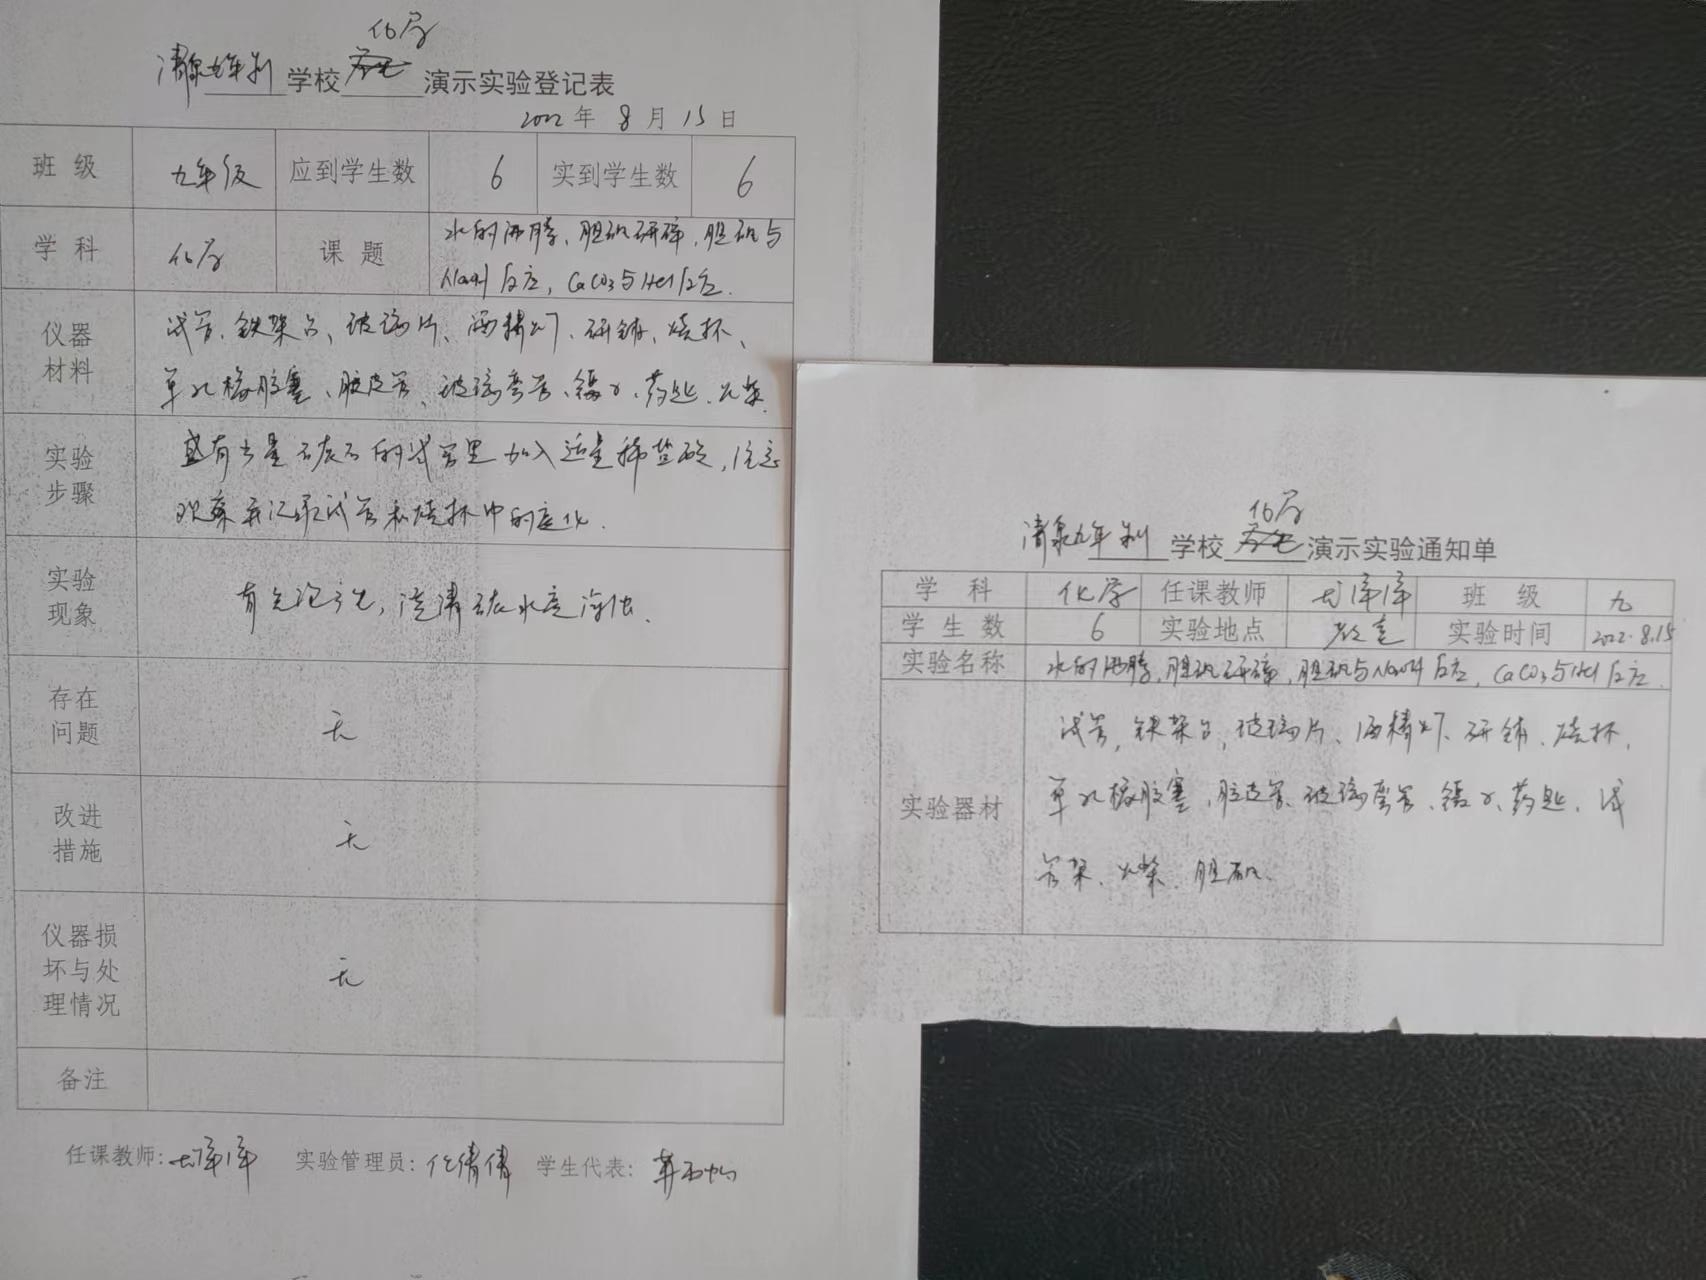 化学
清泉九年制学校 演示实验登记表
2022年 8月 15日
班级 九年级 应到学生数 6 实到学生数 6
学科 化学 课题 水的沸腾、胆矾研碎、胆矾与
NaOH反应, CaCO3与HCl反应.
仪器材料 试管、铁架台、玻璃片、酒精灯、研钵、烧杯、
单孔橡胶塞、胶皮管、玻璃弯管、镊子、药匙、火柴.
实验步骤 盛有少量石灰石的试管里加入适量稀盐酸,注意
观察并记录试管和烧杯中的变化.
实验现象 有气泡产生,澄清石灰水变浑浊.
存在问题 无
改进措施 无
仪器损坏与处理情况 无
备注
任课教师: 实验管理员: 倩倩 学生代表:
化学
清泉九年制学校 演示实验通知单
学科 化学 任课教师 班级 九
学生数 6 实验地点 教室 实验时间 2022.8.15
实验名称 水的沸腾,胆矾研碎,胆矾与NaOH反应, CaCO3与HCl反应.
实验器材 试管,铁架台,玻璃片、酒精灯、研钵、烧杯,
单孔橡胶塞、胶皮管、玻璃弯管、镊子、药匙、试
管架、火柴、胆矾.